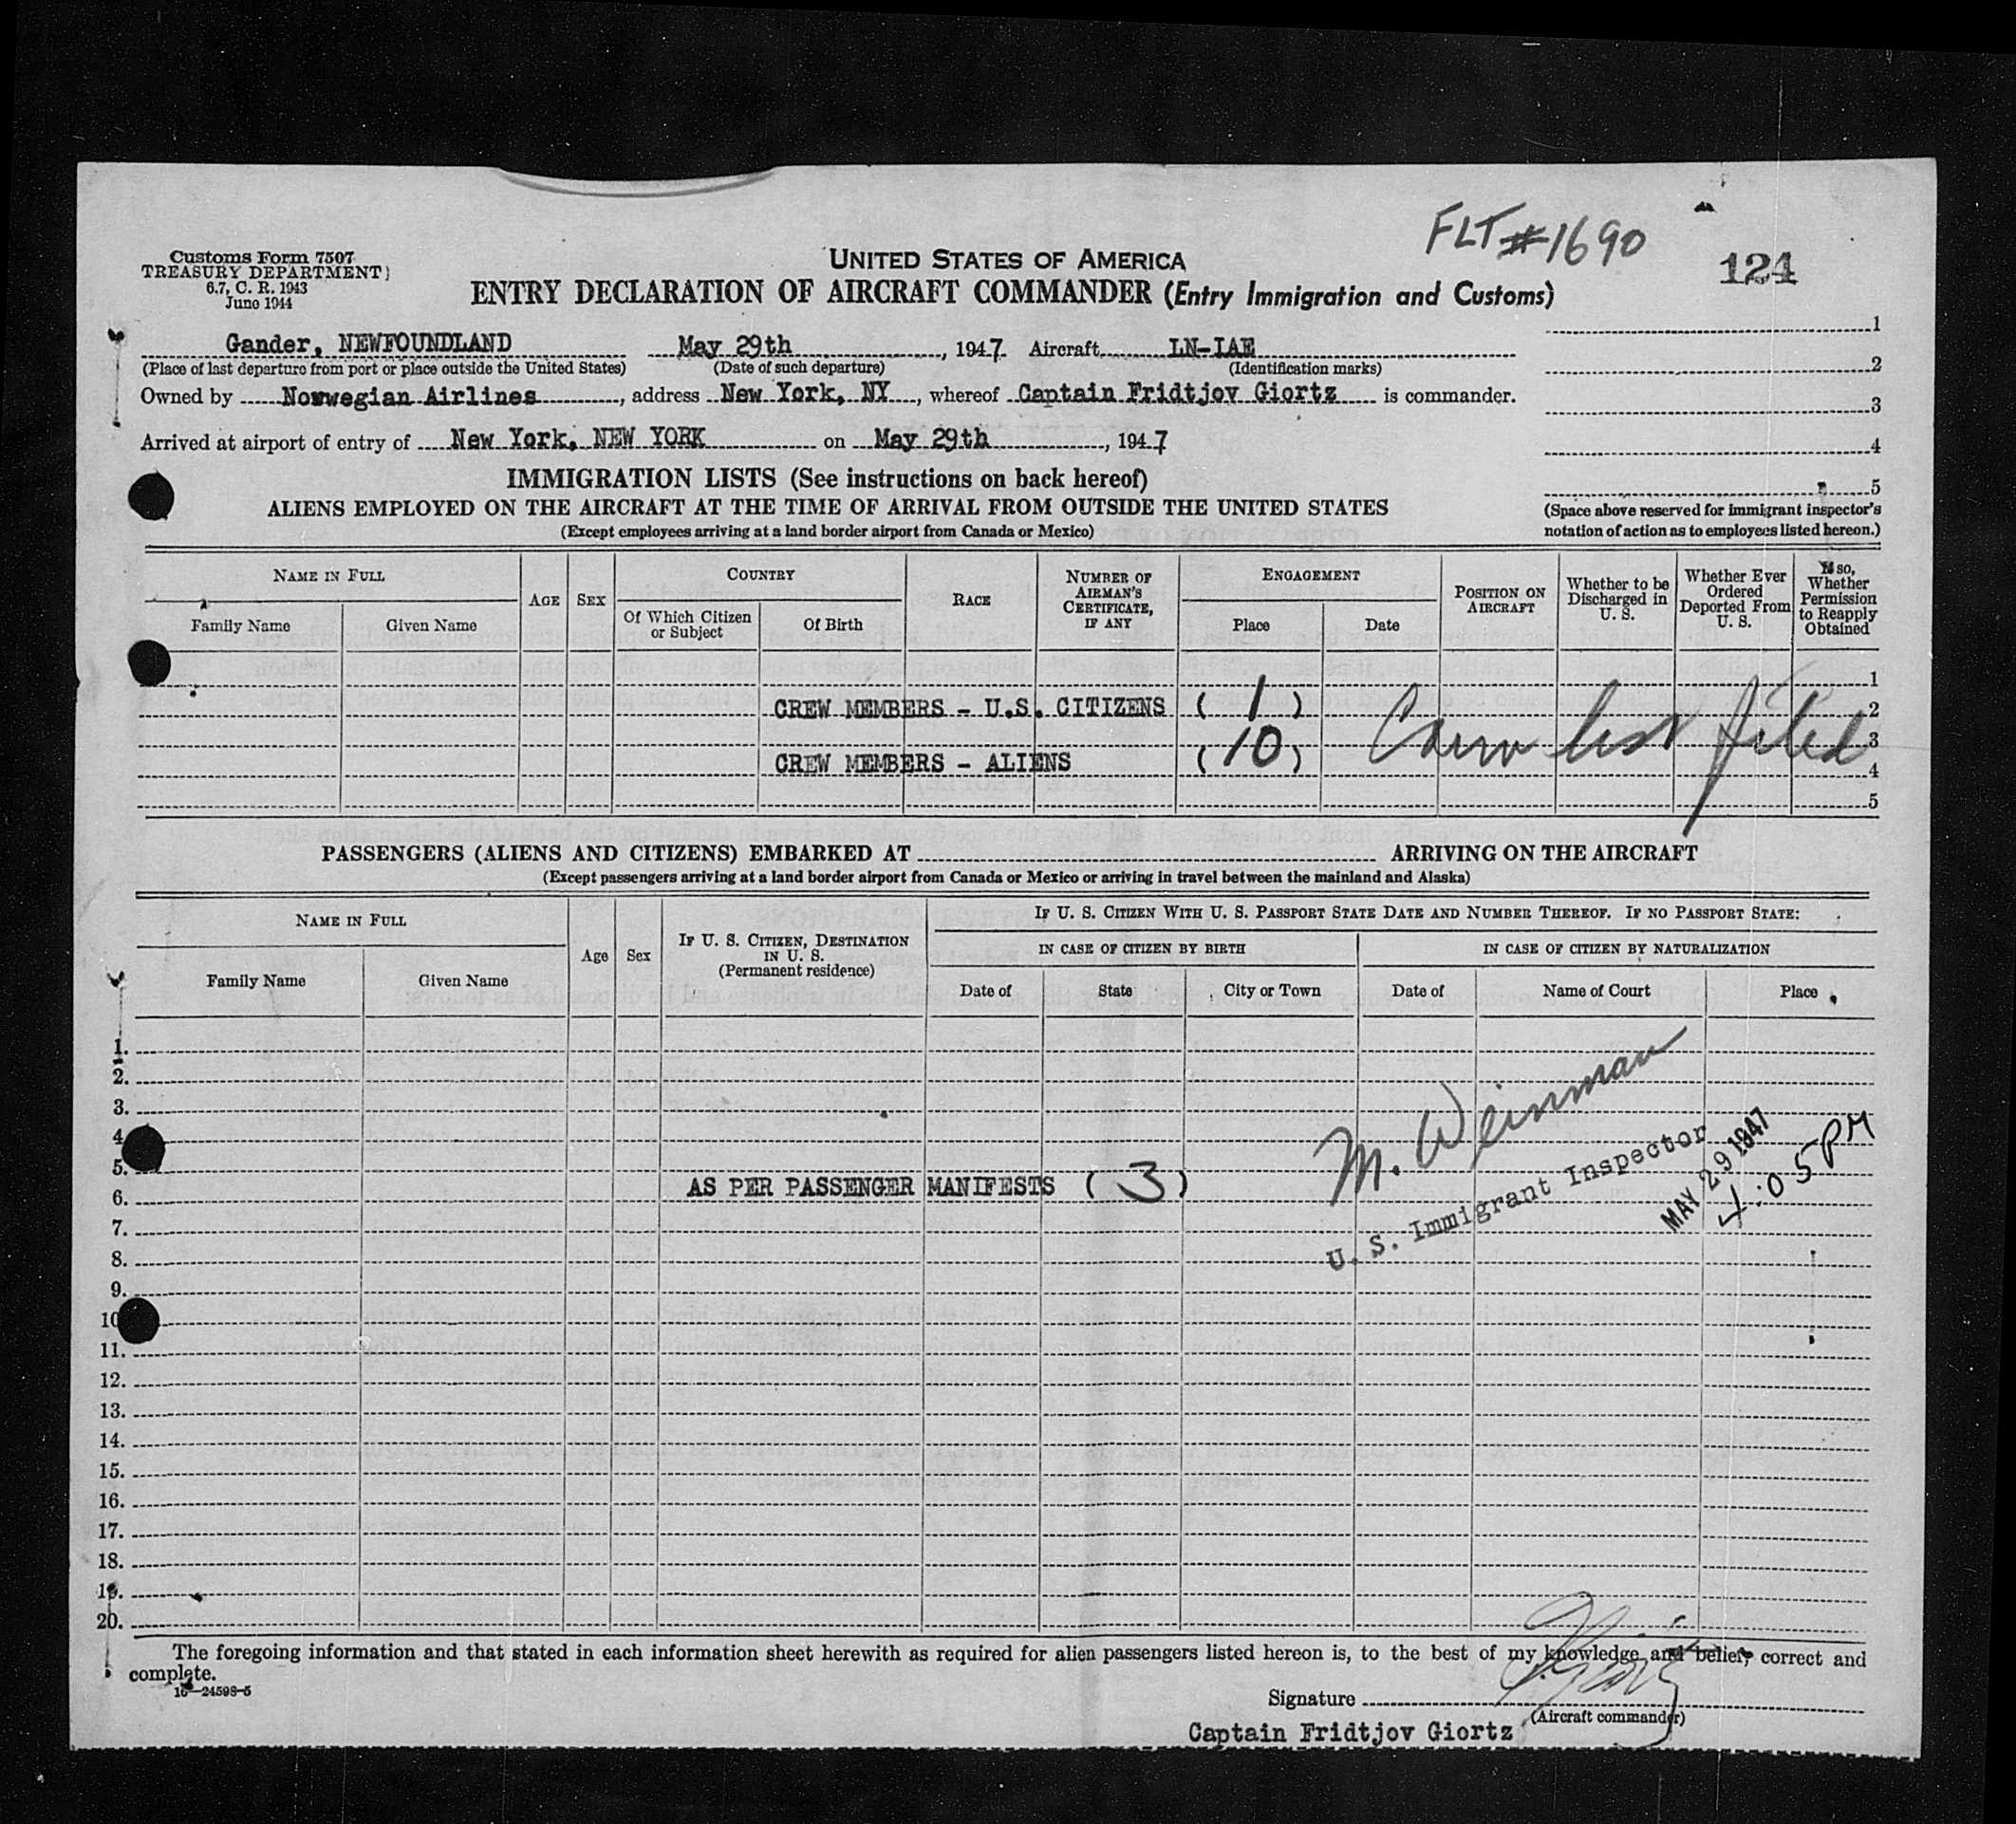 FLT#1690
124
Customs Form 7507
TREASURY DEPARTMENT
6.7, C. R. 1943
June 1944
UNITED STATES OF AMERICA
ENTRY DECLARATION OF AIRCRAFT COMMANDER (Entry Immigration and Customs)
Gander, NEWFOUNDLAND May 29th, 1947 Aircraft LN-IAE
(Place of last departure from port or place outside the United States) (Date of such departure) (Identification marks)
Owned by Norwegian Airlines, address New York, NY, whereof Captain Fridtjov Giortz is commander.
Arrived at airport of entry of New York, NEW YORK on May 29th, 1947
1
2
3
4
5
(Space above reserved for immigrant inspector's
notation of action as to employees listed hereon.)
IMMIGRATION LISTS (See instructions on back hereof)
ALIENS EMPLOYED ON THE AIRCRAFT AT THE TIME OF ARRIVAL FROM OUTSIDE THE UNITED STATES
(Except employees arriving at a land border airport from Canada or Mexico)
NAME IN FULL
Family Name
Given Name
AGE
SEX
COUNTRY
Of Which Citizen
or Subject
Of Birth
RACE
NUMBER OF
AIRMAN'S
CERTIFICATE,
IF ANY
ENGAGEMENT
Place
Date
POSITION ON
AIRCRAFT
Whether to be
Discharged in
U. S.
Whether Ever
Ordered
Deported From
U. S.
If so,
Whether
Permission
to Reapply
Obtained
1
CREW MEMBERS - U.S. CITIZENS ( 1 ) 2
Crew list filed 3
CREW MEMBERS - ALIENS (10) 4
5
PASSENGERS (ALIENS AND CITIZENS) EMBARKED AT ARRIVING ON THE AIRCRAFT
(Except passengers arriving at a land border airport from Canada or Mexico or arriving in travel between the mainland and Alaska)
NAME IN FULL
Family Name
Given Name
Age
Sex
IF U. S. CITIZEN, DESTINATION
IN U. S.
(Permanent residence)
IF U. S. CITIZEN WITH U. S. PASSPORT STATE DATE AND NUMBER THEREOF. IF NO PASSPORT STATE:
IN CASE OF CITIZEN BY BIRTH
Date of
State
City or Town
IN CASE OF CITIZEN BY NATURALIZATION
Date of
Name of Court
Place
1.
2.
3.
4.
5.
6. AS PER PASSENGER MANIFESTS (3)
M. Weinman
U. S. Immigrant Inspector
MAY 29 1947
4:05PM
7.
8.
9.
10
11.
12.
13.
14.
15.
16.
17.
18.
19.
20.
The foregoing information and that stated in each information sheet herewith as required for alien passengers listed hereon is, to the best of my knowledge and belief, correct and
complete.
16—24598-5
Signature
(Aircraft commander)
Captain Fridtjov Giortz